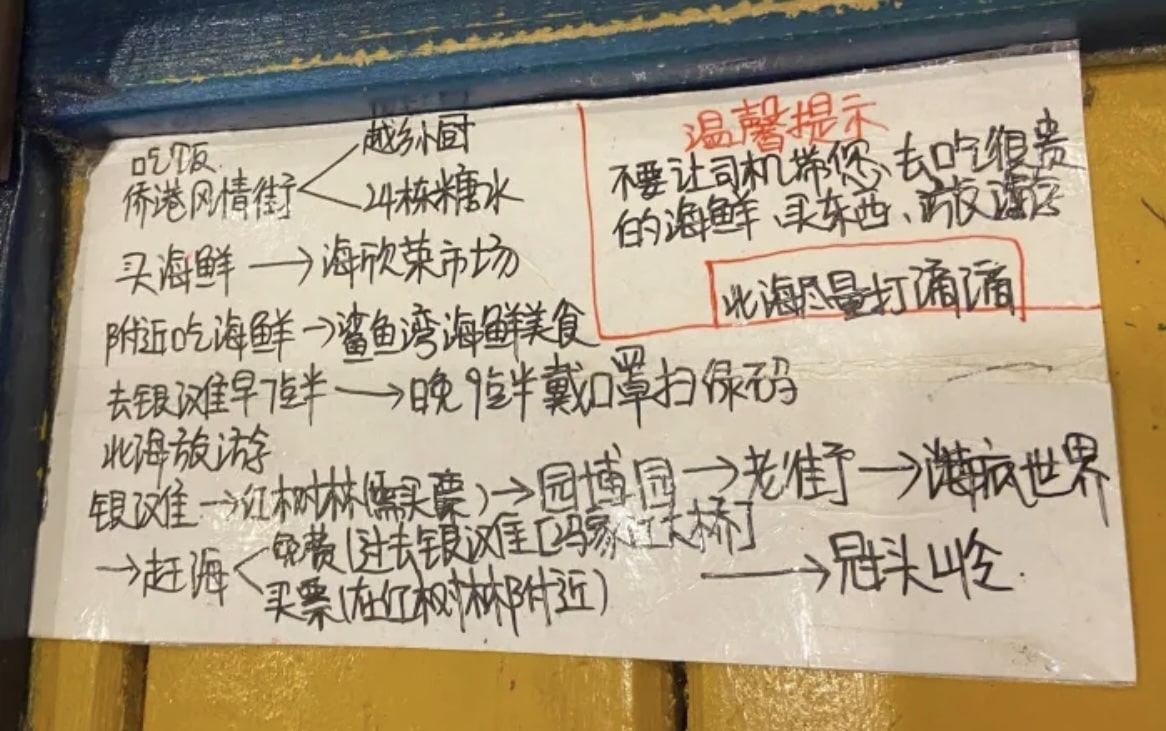 吃饭
侨港风情街
越乡小厨
24栋糖水
买海鲜→海欣菜市场
附近吃海鲜→鲨鱼湾海鲜美食
去银滩早7点半→晚9点半戴口罩扫绿码
北海旅游
银滩→红树林(需买票)→园博园→老街→海底世界
→赶海
免费(过去银滩[冯家江大桥]
买票(在红树林附近)
→冠头岭
温馨提示
不要让司机带您去吃很贵
的海鲜、买东西、旅游
北海尽量打滴滴